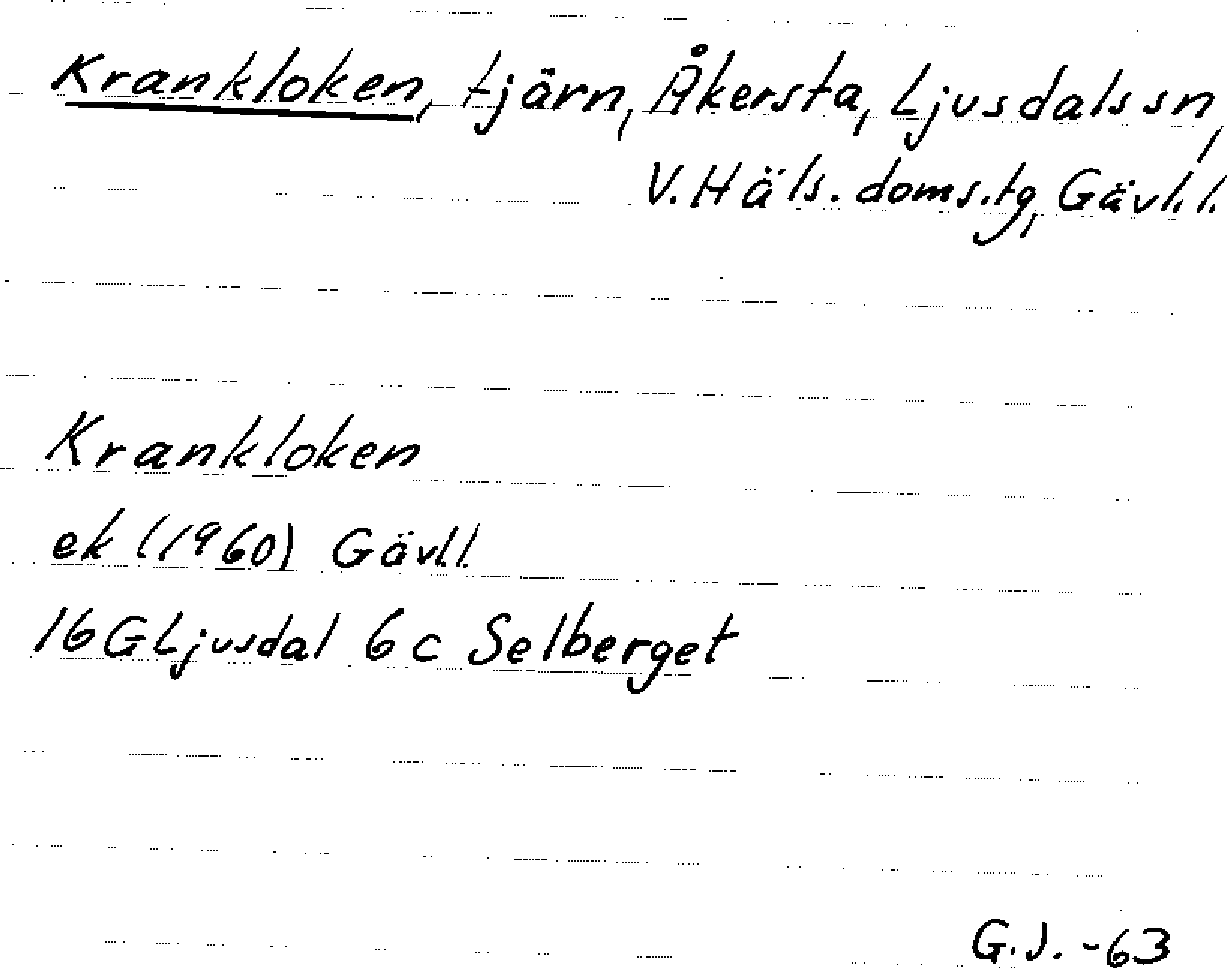 Krankloken, tjärn, Åkersta, Ljusdals sn,
V. Häls. doms.tg, Gävl.l.
Krankloken
ek (1960) Gävl.l.
16 G Ljusdal 6 c Selberget
G.J. -63